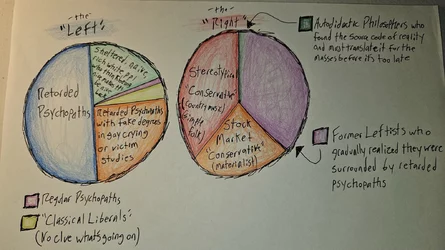 -the-
"Left"
Retarded
Psychopaths
Sheltered, naive,
rich white ppl
Retarded Psychopaths
with fake degrees
in gay crying
or victim
studies
Regular Psychopaths
"Classical Liberals"
(No clue what's going on)
-the-
"Right"
Stereotypical
"Conservative"
simple
folk)
Stock
Market
"Conservative"
(materialist)
Autodidactic Philosophers who
found the source code of reality
and must translate it for the
masses before it's too late
Former Leftists who
gradually realized they were
surrounded by retarded
psychopaths